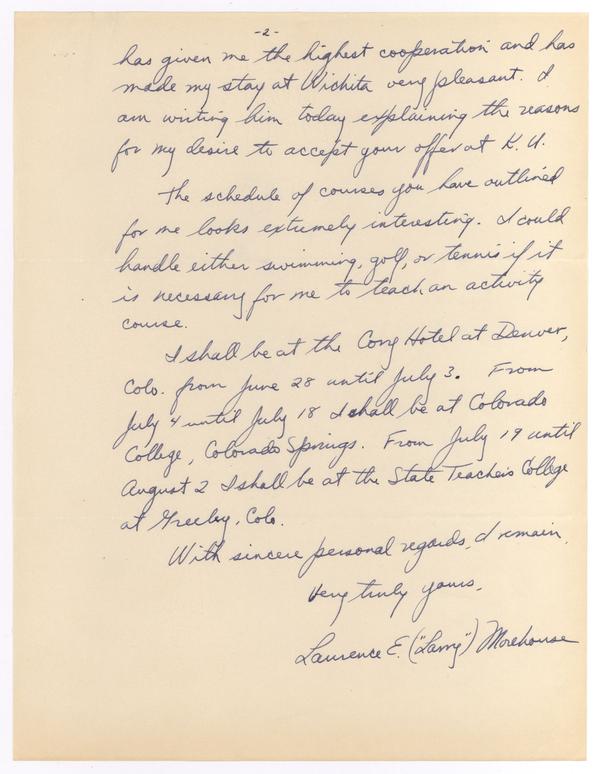 -2-
has given me the highest cooperation and has
made my stay at Wichita very pleasant. I
am writing him today explaining the reasons
for my desire to accept your offer at K. U.
The schedule of courses you have outlined
for me looks extremely interesting. I could
handle either swimming, golf, or tennis if it
is necessary for me to teach an activity
course.
I shall be at the Cory Hotel at Denver,
Colo. from June 28 until July 3. From
July 4 until July 18 I shall be at Colorado
College, Colorado Springs. From July 19 until
August 2 I shall be at the State Teachers College
at Greeley, Colo.
With sincere personal regards, I remain,
Very truly yours,
Laurence E. ("Larry") Morehouse